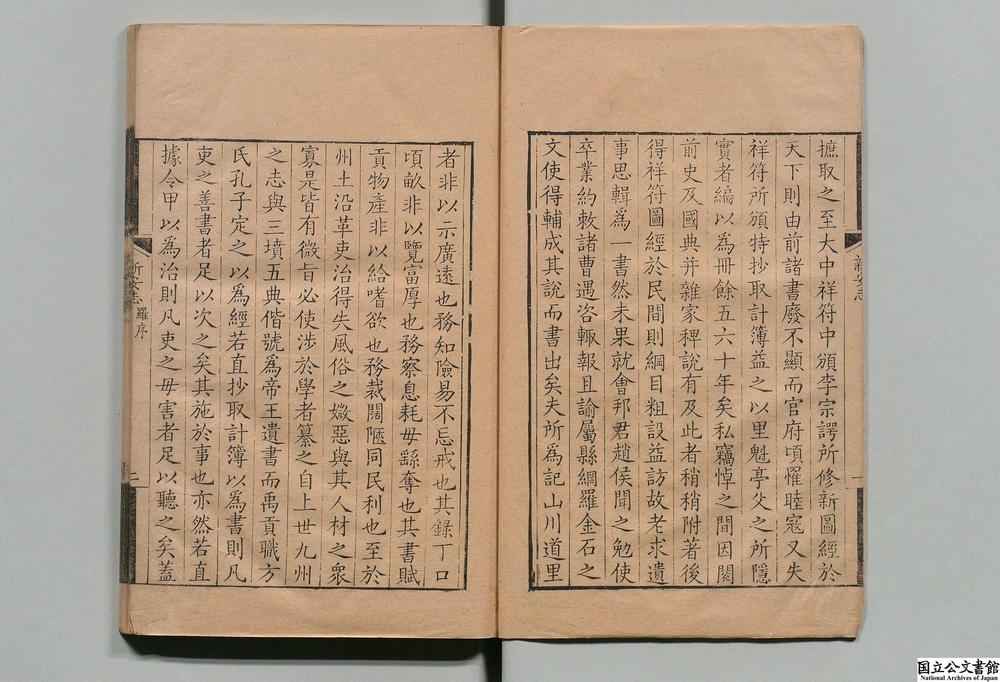 摭取之至大中祥符中頒李宗諤所修新圖經於
天下則由前諸書廢不顯而官府頃罹睦寇又失
祥符所頒特抄取計簿益之以里魁亭父之所隱
實者編以為冊餘五六十年矣私竊悼之間因閱
前史及國典并雜家稗說有及此者稍稍附著後
得祥符圖經於民間則綱目粗設益訪故老求遺
事思輯為一書然未果就會邦君趙侯聞之勉使
卒業約敕諸曹遇咨輙報且諭屬縣網羅金石之
文使得輔成其說而書出矣夫所為記山川道里
新安志
一
者非以示廣遠也務知險易不忘戒也其錄丁口
頃畝非以覽富厚也務察息耗毋繇奪也其書賦
貢物產非以給嗜欲也務裁闊陿同民利也至於
州土沿革吏治得失風俗之媺惡與其人材之衆
寡是皆有微旨必使涉於學者纂之自上世九州
之志與三墳五典偕號為帝王遺書而禹貢職方
氏孔子定之以為經若直抄取計簿以為書則凡
吏之善書者足以次之矣其施於事也亦然若直
據令甲以為治則凡吏之毋害者足以聽之矣蓋
新安志
羅序
二
国立公文書館
National Archives of Japan